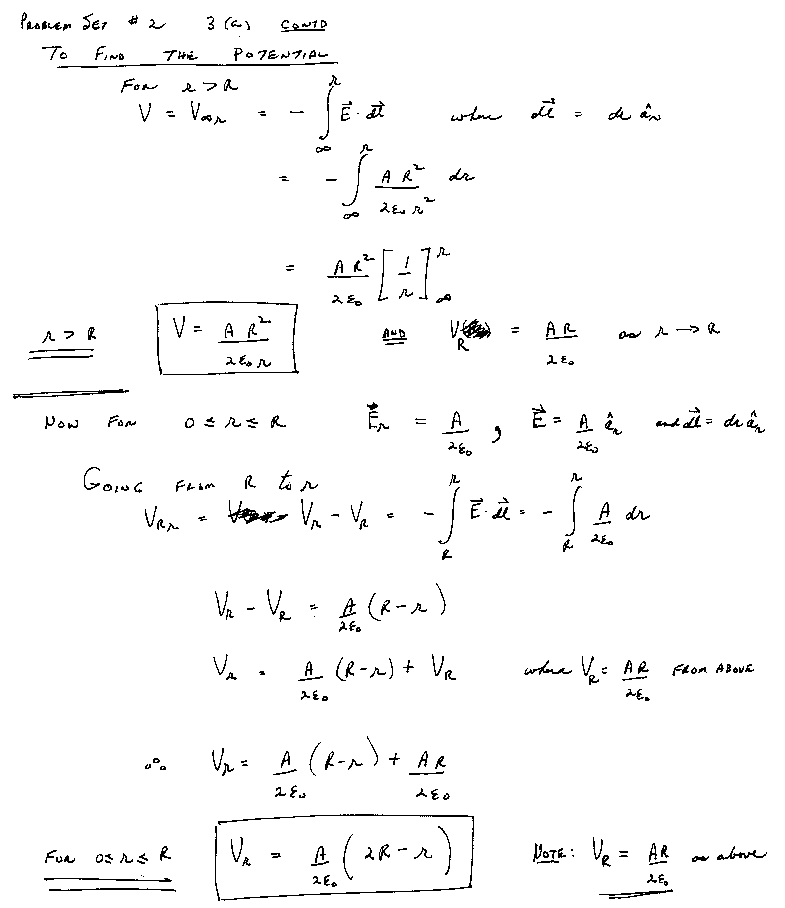 PROBLEM SET # 2 3 (a) CONTD
TO FIND THE POTENTIAL
FOR r > R
V = V∞r = - ∫_∞^r E⃗ · dl⃗ where dl⃗ = dr âr
= - ∫_∞^r A R² / 2ε₀ r² dr
= A R² / 2ε₀ [ 1 / r ]_∞^r
r > R V = A R² / 2ε₀ r AND V_R = AR / 2ε₀ as r → R
NOW FOR 0 ≤ r ≤ R E⃗r = A / 2ε₀ , E⃗ = A / 2ε₀ âr and dl⃗ = dr âr
GOING FROM R to r
V_Rr = Vr - V_R = - ∫_R^r E⃗ · dl⃗ = - ∫_R^r A / 2ε₀ dr
Vr - V_R = A / 2ε₀ (R - r)
Vr = A / 2ε₀ (R - r) + V_R where V_R = AR / 2ε₀ FROM ABOVE
∴ Vr = A / 2ε₀ (R - r) + A R / 2ε₀
FOR 0 ≤ r ≤ R Vr = A / 2ε₀ (2R - r) NOTE: V_R = AR / 2ε₀ as above